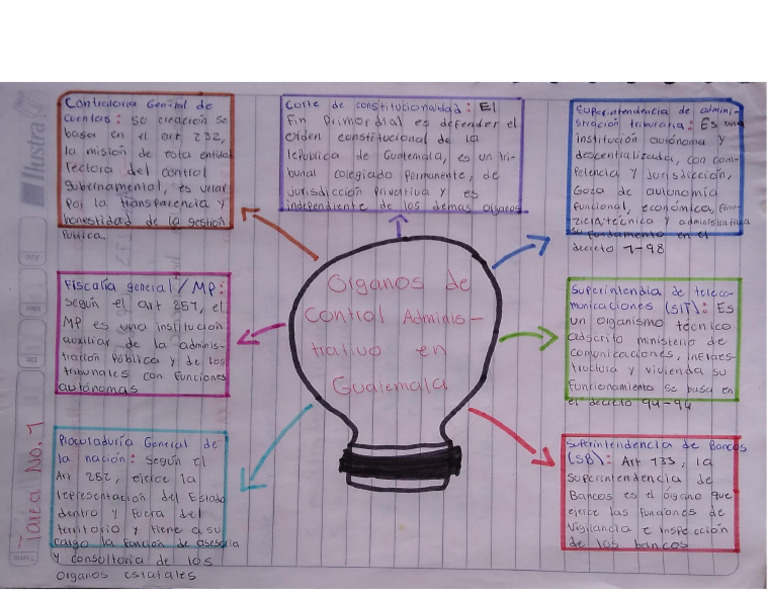 Contraloria General de
cuentas: su creación se
basa en el art 232,
la misión de esta entidad
rectora del control
gubernamental, es velar
por la transparencia y
honestidad de la gestión
Publica.
Corte de constitucionalidad: El
Fin primordial es defender el
orden constitucional de la
república de Guatemala, es un tri-
bunal colegiado permanente, de
jurisdicción privativa y es
independiente de los demas organos
Superintendencia de admini-
stración tributaria: Es una
institución autónoma y
descentralizada, con com-
petencia y jurisdicción,
Goza de autonomía
funcional, económica, fina-
ciera, técnica y administrativa
su fundamento en el
decreto 1-98
Fiscalía general / MP:
Según el art 251, el
MP es una institución
auxiliar de la adminis-
tración Pública y de los
tribunales con funciones
autónomas
Organos de
Control Adminis-
trativo en
Guatemala
Superintendia de teleco-
municaciones (SIT): Es
un organismo técnico
adscrito ministerio de
comunicaciones, infraes-
tructura y vivienda su
Funcionamiento se basa en
el decreto 94-96
Procuraduría General de
la nación: Según el
Art 252, ejerce la
representación del Estado
dentro y fuera del
territorio y tiene a su
cargo la función de asesoria
y consultoria de los
Organos estatales
Superintendencia de Bancos
(SB): Art 133, la
Superintendencia de
Bancos es el órgano que
ejerce las funciones de
Vigilancia e inspección
de los bancos
Tarea No. 1
Ilustra